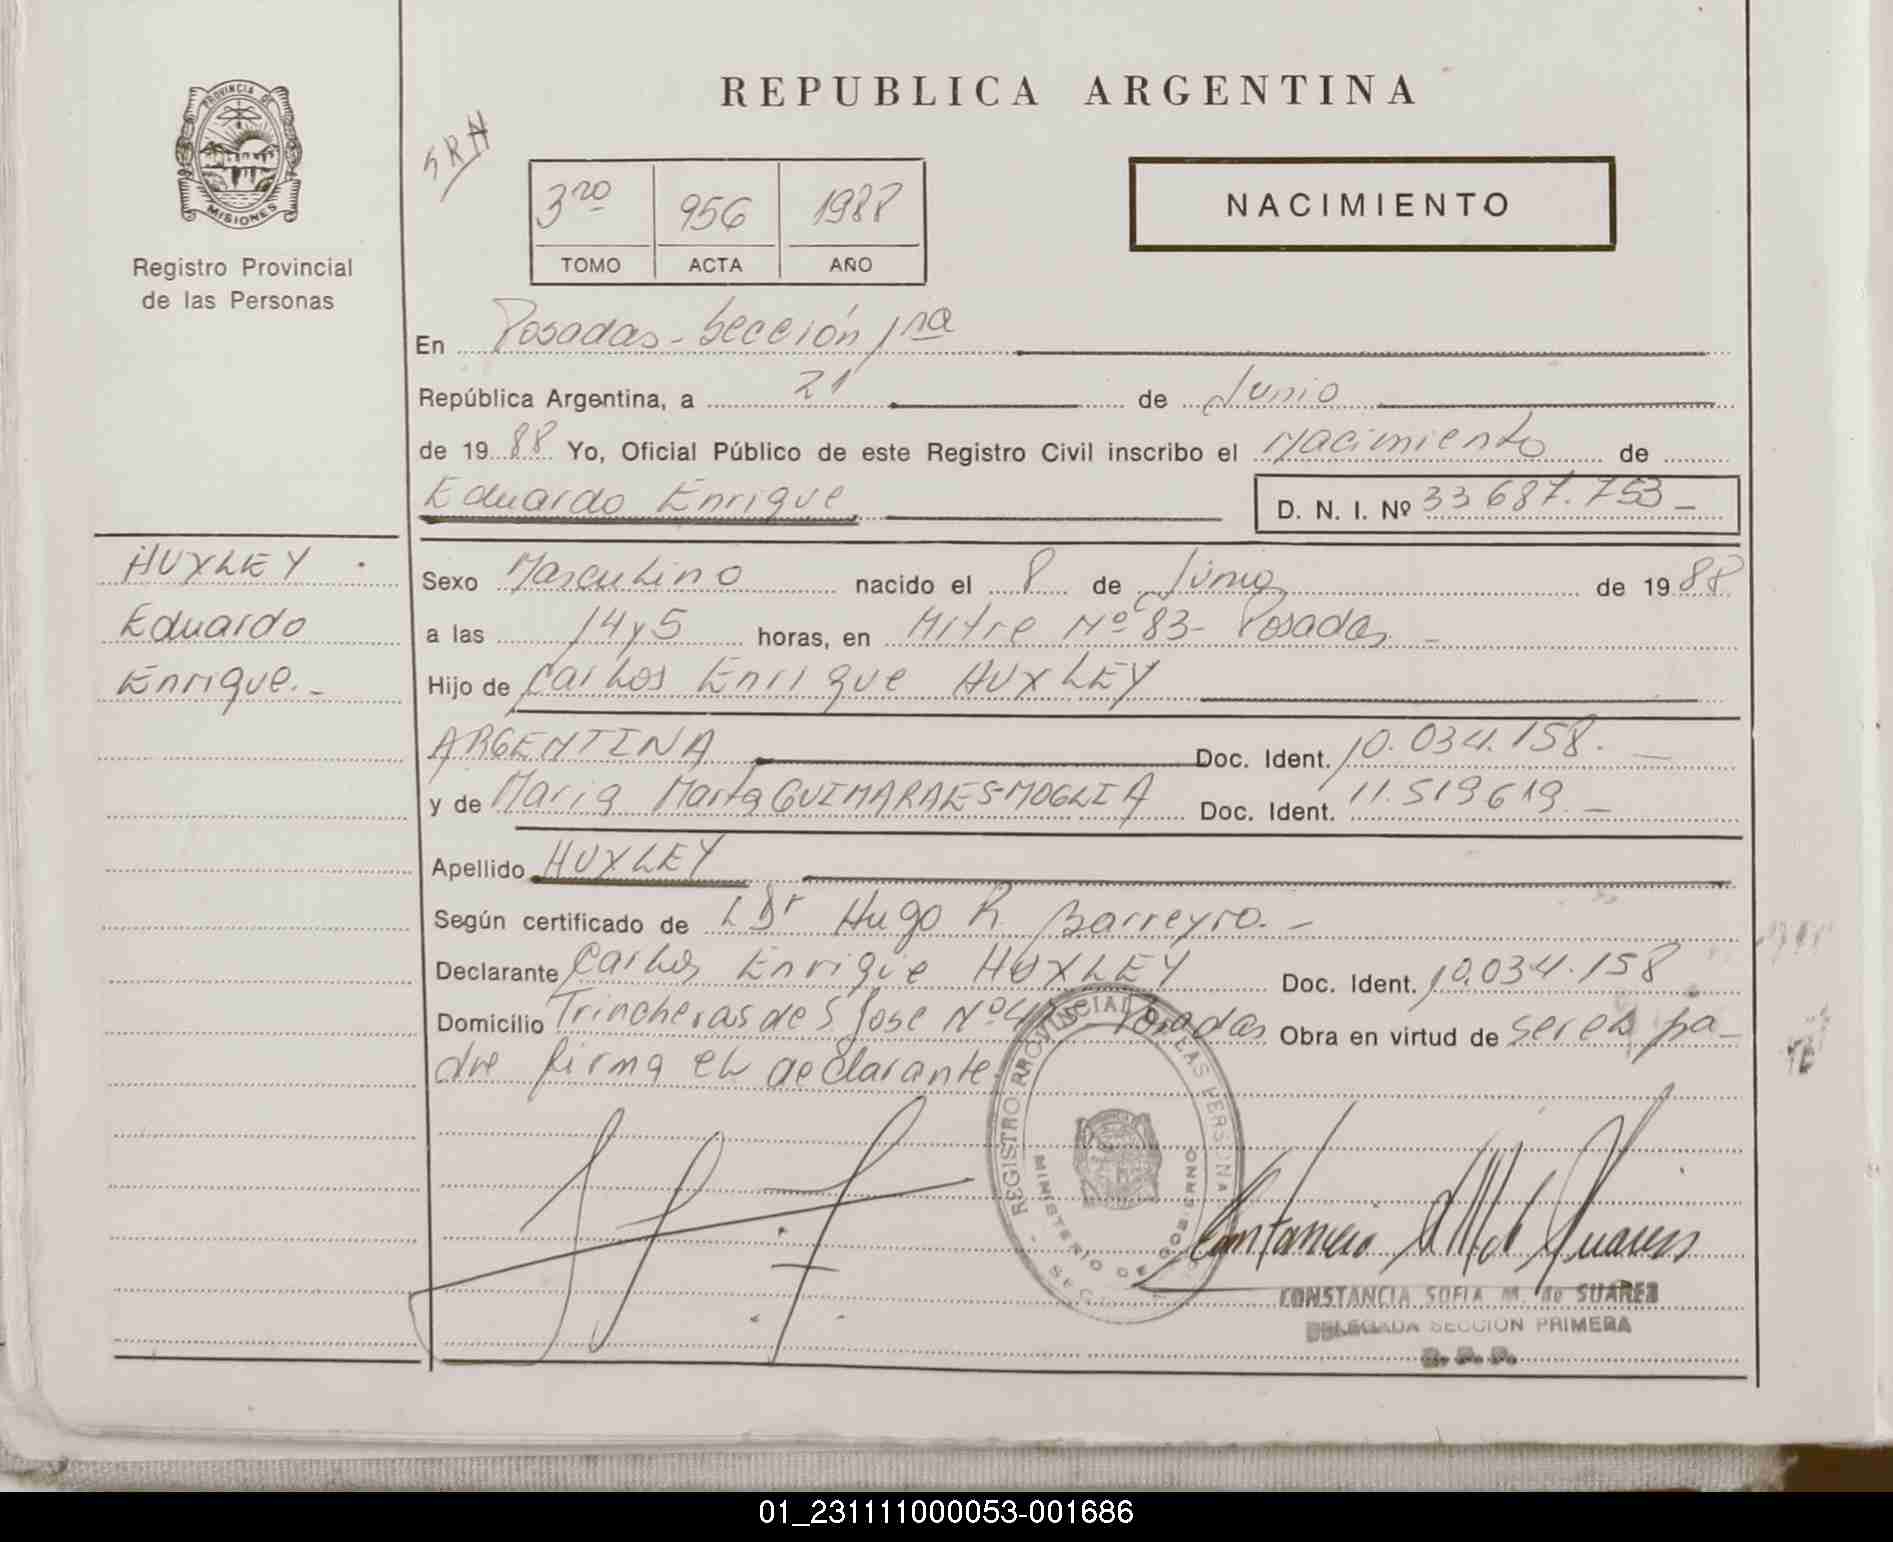 PROVINCIA DE
MISIONES
Registro Provincial
de las Personas
HUXLEY
Eduardo
Enrique.-
REPUBLICA ARGENTINA
3ro 956 1988
TOMO ACTA AÑO
NACIMIENTO
En Posadas - Sección 1ra
República Argentina, a 21 de Junio
de 1988 Yo, Oficial Público de este Registro Civil inscribo el Nacimiento de
Eduardo Enrique D. N. I. Nº 33 687.753 -
Sexo Masculino nacido el 8 de Junio de 1988
a las 14 y 5 horas, en Mitre Nº 83 - Posadas. -
Hijo de Carlos Enrique HUXLEY
ARGENTINA Doc. Ident. 10.034.158. -
y de Maria Marta GUIMARAES-MOGLIA Doc. Ident. 11.519619. -
Apellido HUXLEY
Según certificado de L Dr Hugo R. Barreyro. -
Declarante Carlos Enrique HUXLEY Doc. Ident. 10.034.158
Domicilio Trincheras de S. Jose Nº Posadas Obra en virtud de ser el pa-
dre firma el declarante
REGISTRO PROVINCIAL DE LAS PERSONAS
MINISTERIO DE GOBIERNO
CONSTANCIA SOFIA M. de SUAREZ
DELEGADA SECCION PRIMERA
R. P. P.
01_231111000053-001686